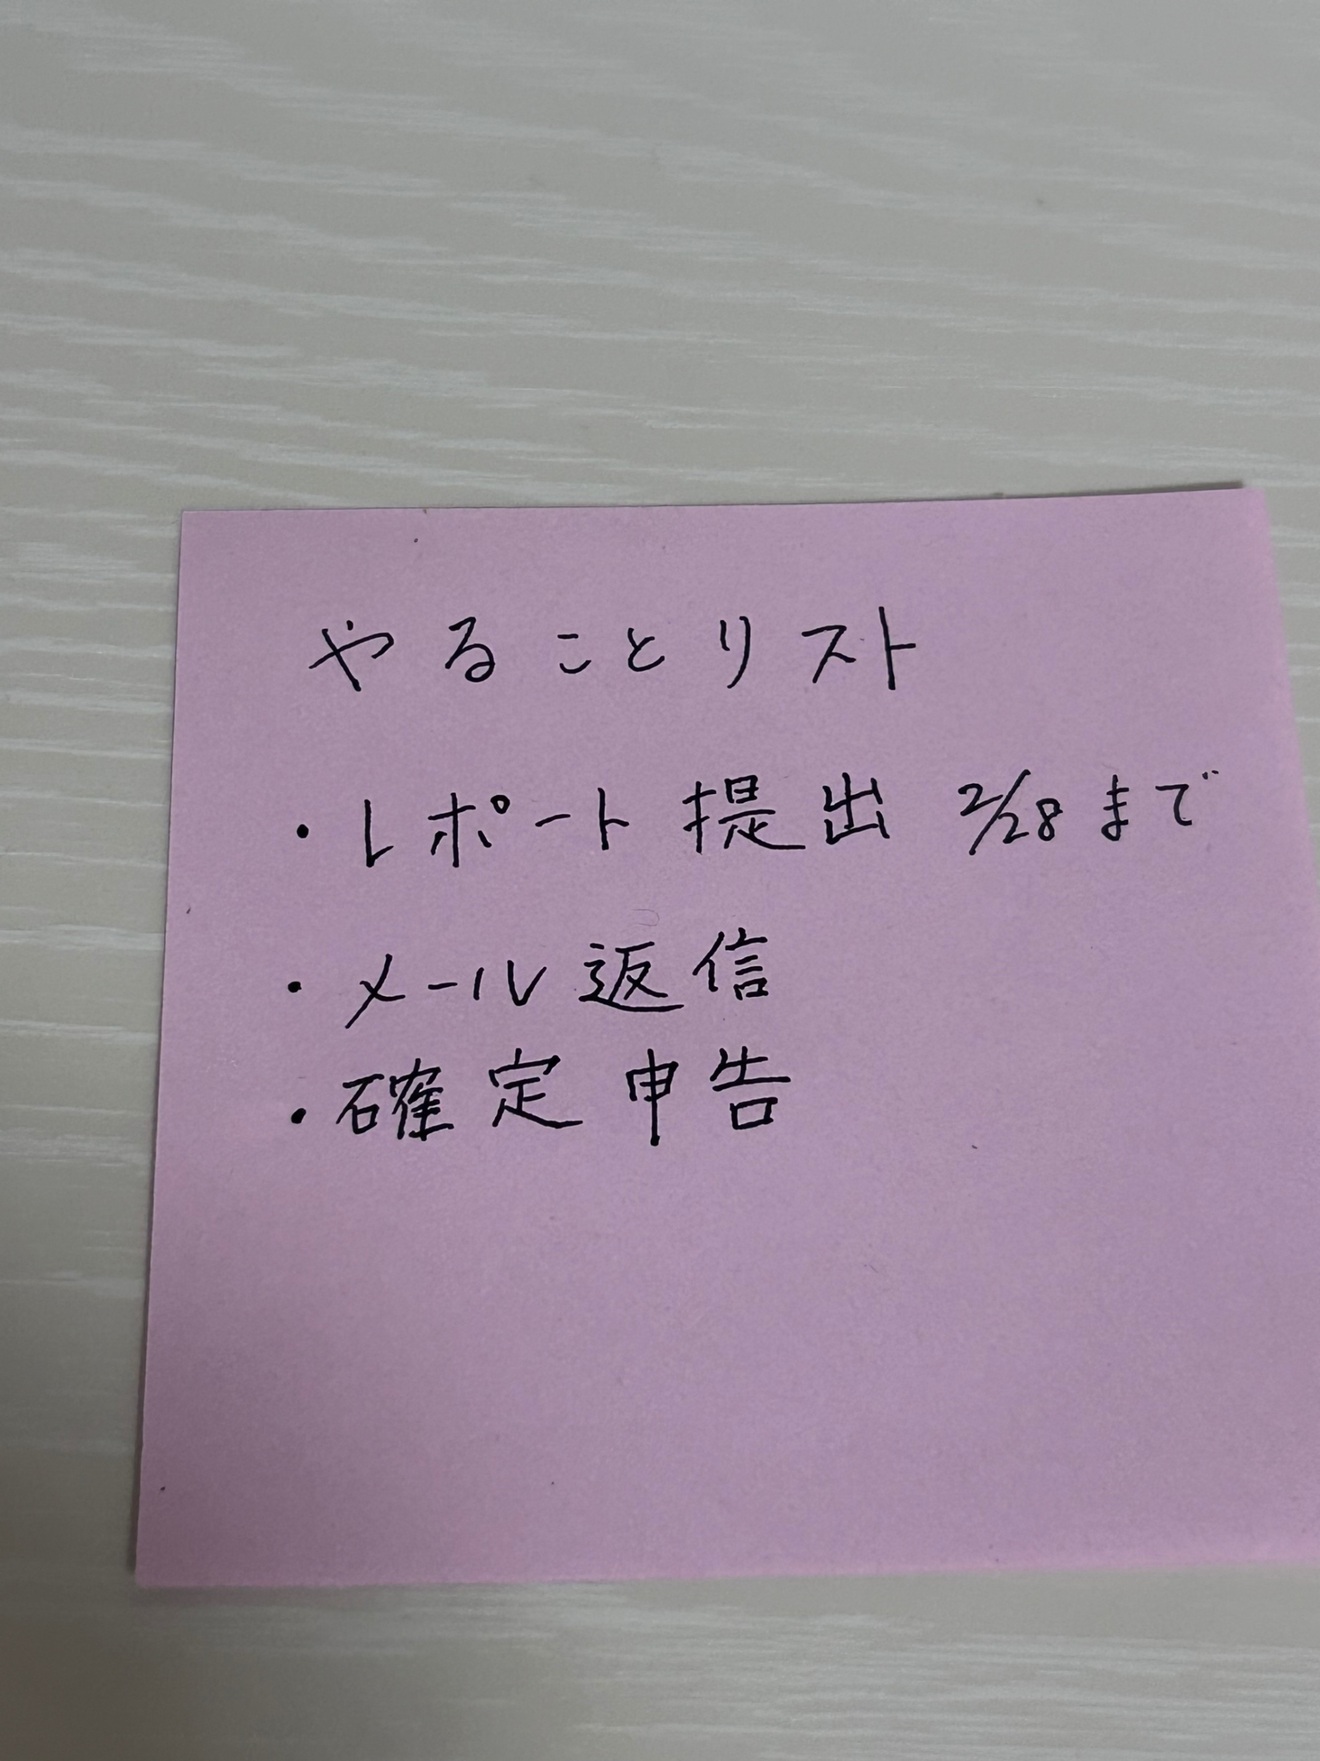 やることリスト
・レポート提出 2/28まで
・メール返信
・確定申告